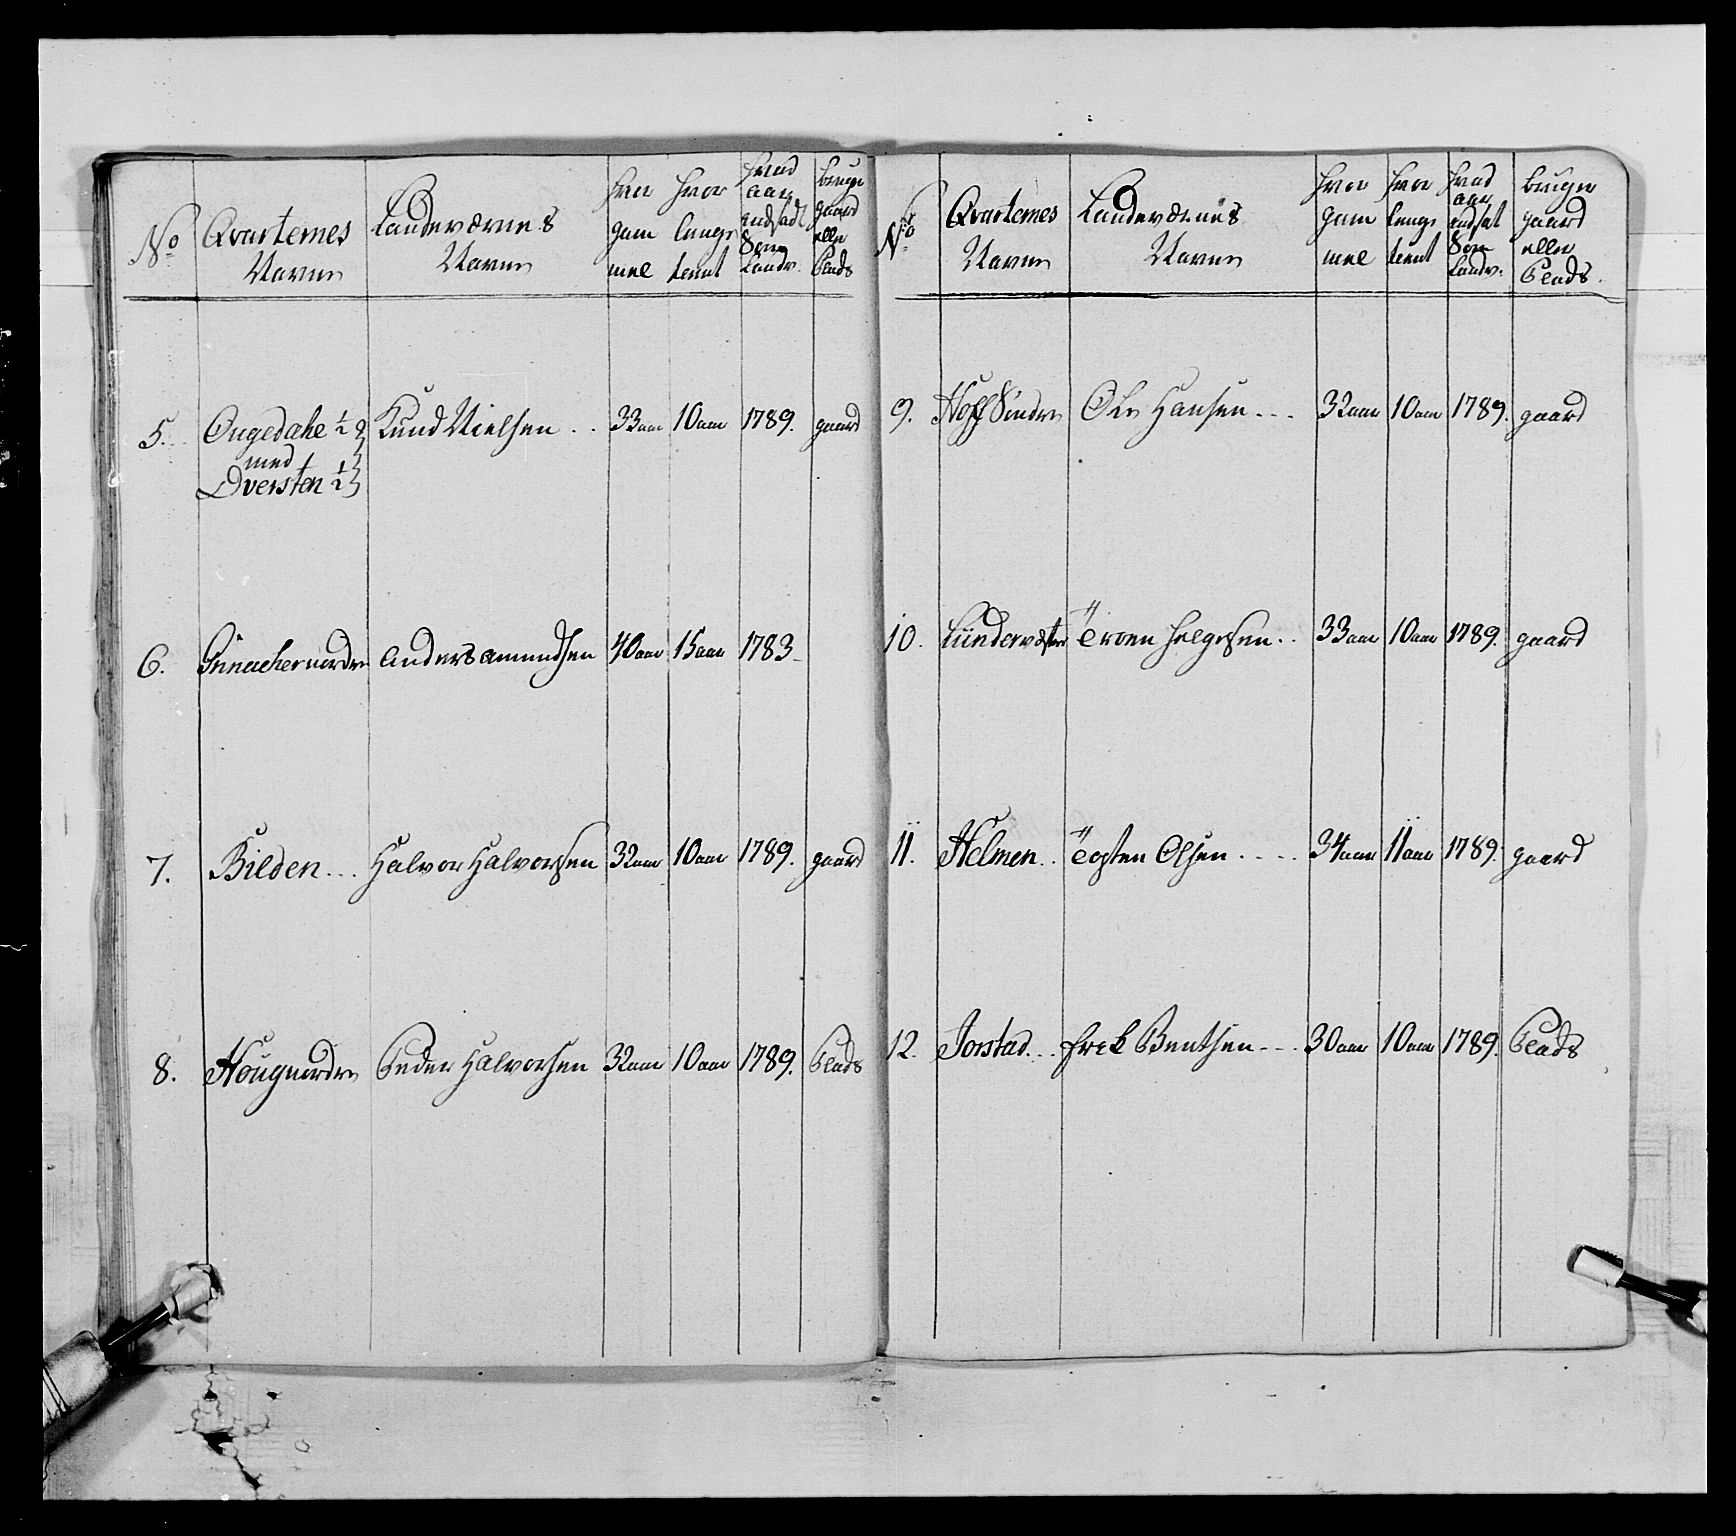 No Qvarternes Navne Landeværnes Navne hvor gammel hvor lenge tient hvad aar andsadt Som Landv. bruger gaard eller Plads
5. Ougedahl ½ Knud Nielsen .. 33 aar 10 aar 1789. gaard
med
Oversten ½
6. nordre Anders Amundsen 40 aar 15 aar 1783
7. Bilden... Halvor Halvorsen 32 aar 10 aar 1789. gaard
8. Houg nordre Peder Halvorsen 32 aar 10 aar 1789. Plads
No Qvarternes Navne Landeværnes Navne hvor gammel hvor lenge tient hvad aar andsat Som Landv. bruger gaard eller Plads.
9. Hoff Søndre Ole Hansen... 32 aar 10 aar 1789. gaard
10. Helgesen.. 33 aar 10 aar 1789. gaard
11. Helmen.. Tosten Olsen.... 34 aar 11 aar 1789. gaard
12. Jorstad... Bentsen... 30 aar 10 aar 1789. Plads